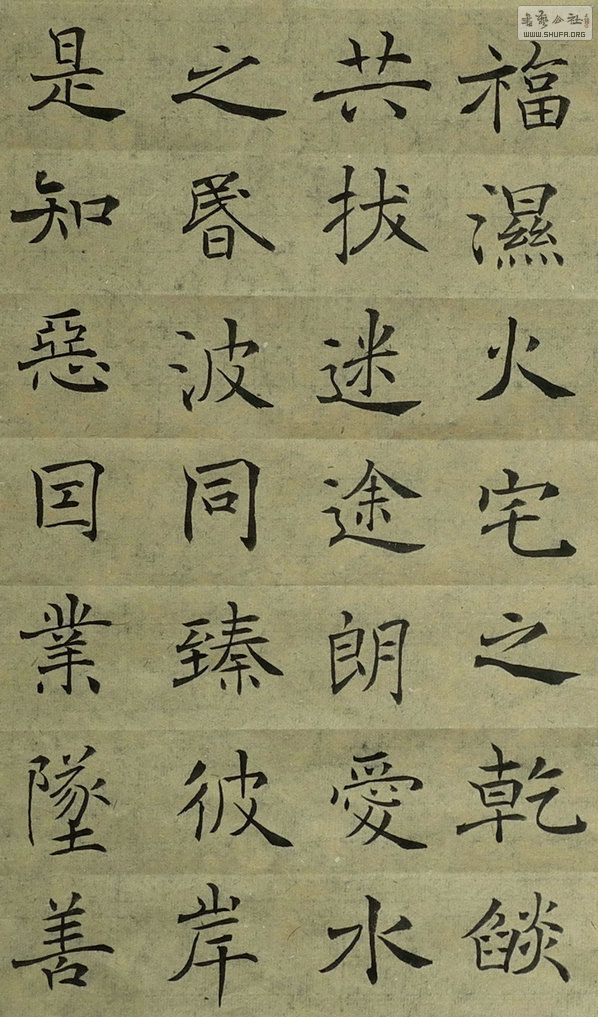 福濕火宅之乾燄
共拔迷途朗愛水
之昬波同臻彼岸
是知惡因業墜善
書藝公社
WWW.SHUFA.ORG